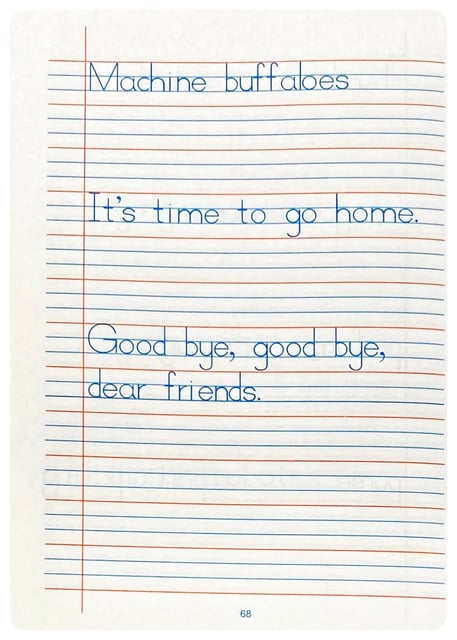 Machine buffaloes
It's time to go home.
Good bye, good bye,
dear friends.
68